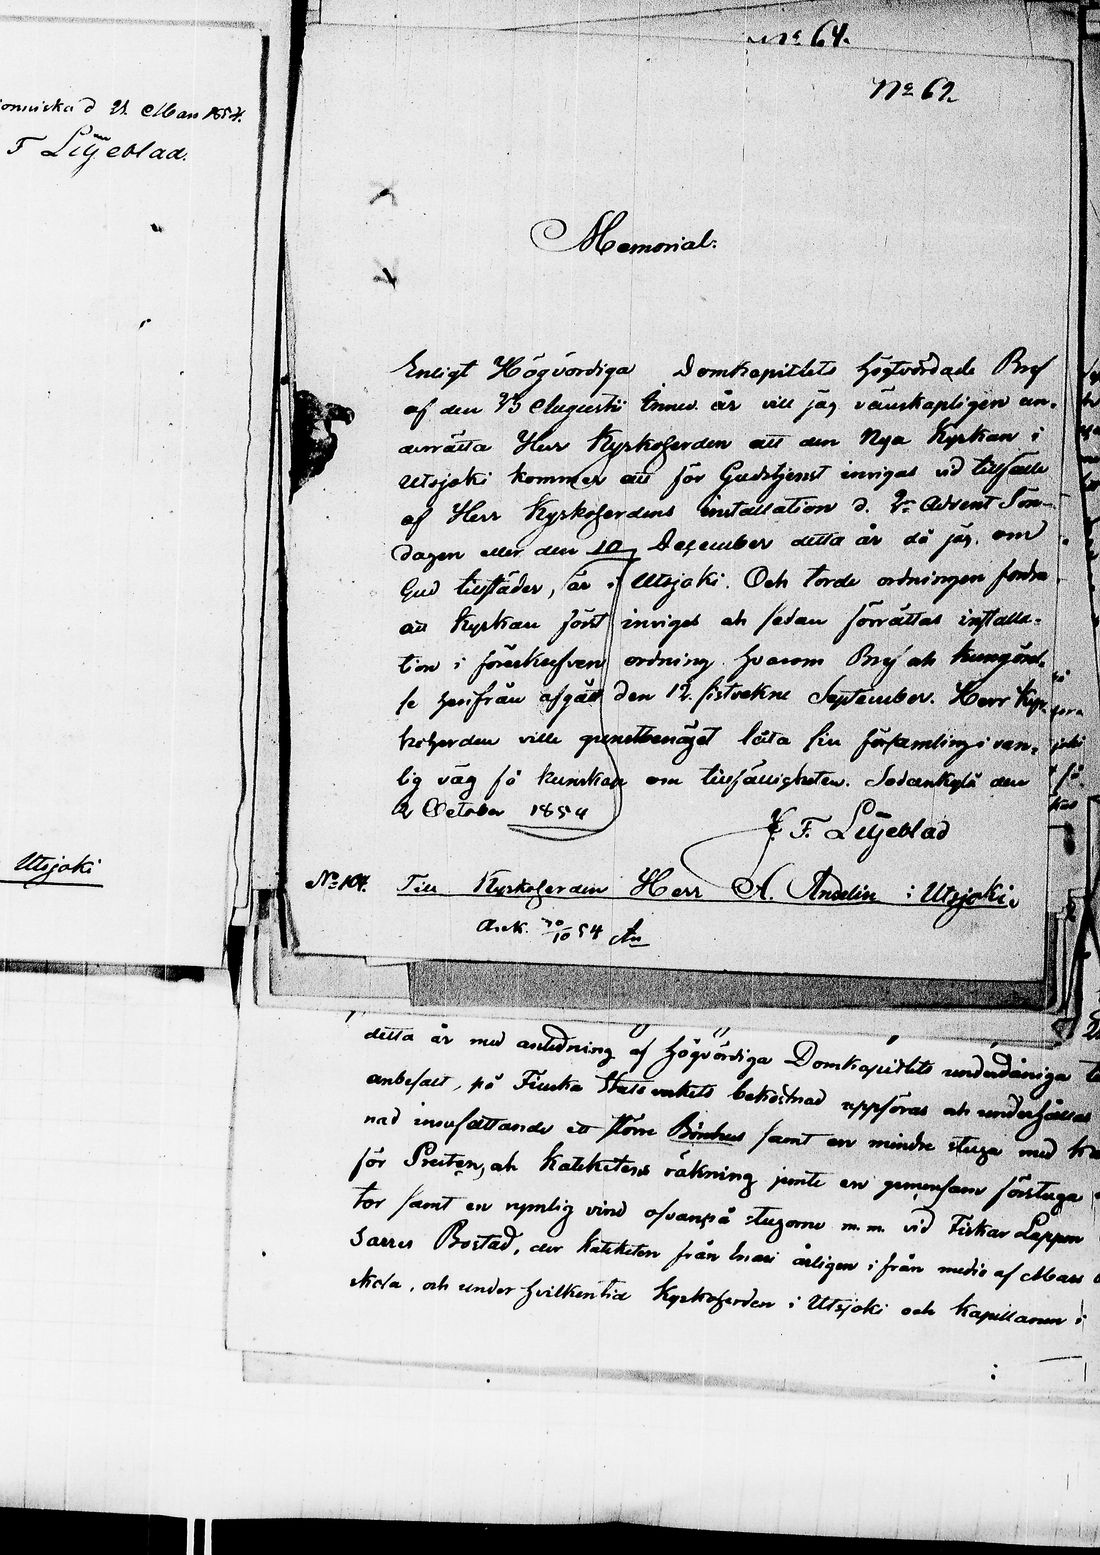 d 21 Mars 1854.
F Liljeblad.
Utsjoki
No 64.
No 62.
Memorial:
Enligt Högvördiga Domkapitlets högtvördade Bref
af den 23 Augusti innev. år vill jag vänskapligen un-
derrätta Herr Kyrkoherden att den Nya Kyrkan i
Utsjoki kommer att för Gudstjenst invigas vid tillfälle
af Herr Kyrkoherdens installation d. 2n Advent Sön-
dagen eller den 10 December detta år då jag, om
Gud tillstäder, är i Utsjoki. Och torde ordningen fordra
att Kyrkan först inviges och sedan förrättas installa-
tion i föreskrefven ordning hvarom Bref och kungörel-
se härifrån afgått den 12 sistvekne September. Herr Kyr-
koherden ville gunstbenäget låta sin församling i van-
lig väg få kunskap om tillfälligheten. Sodankylä den
2 October 1854
F. Liljeblad
No 104. Till Kyrkoherden Herr A. Andelin i Utsjoki.
Ank. 30/10 54 An
detta år med anledning af Högvördiga Domkapitlets underdåniga
anbefalt, på Finska Statsverkets bekostnad uppföras och underhållas
nad innefattande ett större Bönhus samt en mindre stuga med
för Presten, och Katekètens räkning jemte en gemensam förstuga
tor samt en rymlig vind ofvanpå stugorne m.m. vid Fiskar Lappen
Sarres Bostad, der Kateketen från Enari årligen ifrån medio af Mars
skola, och under hvilken tid Kyrkoherden i Utsjoki och Kapellanen i